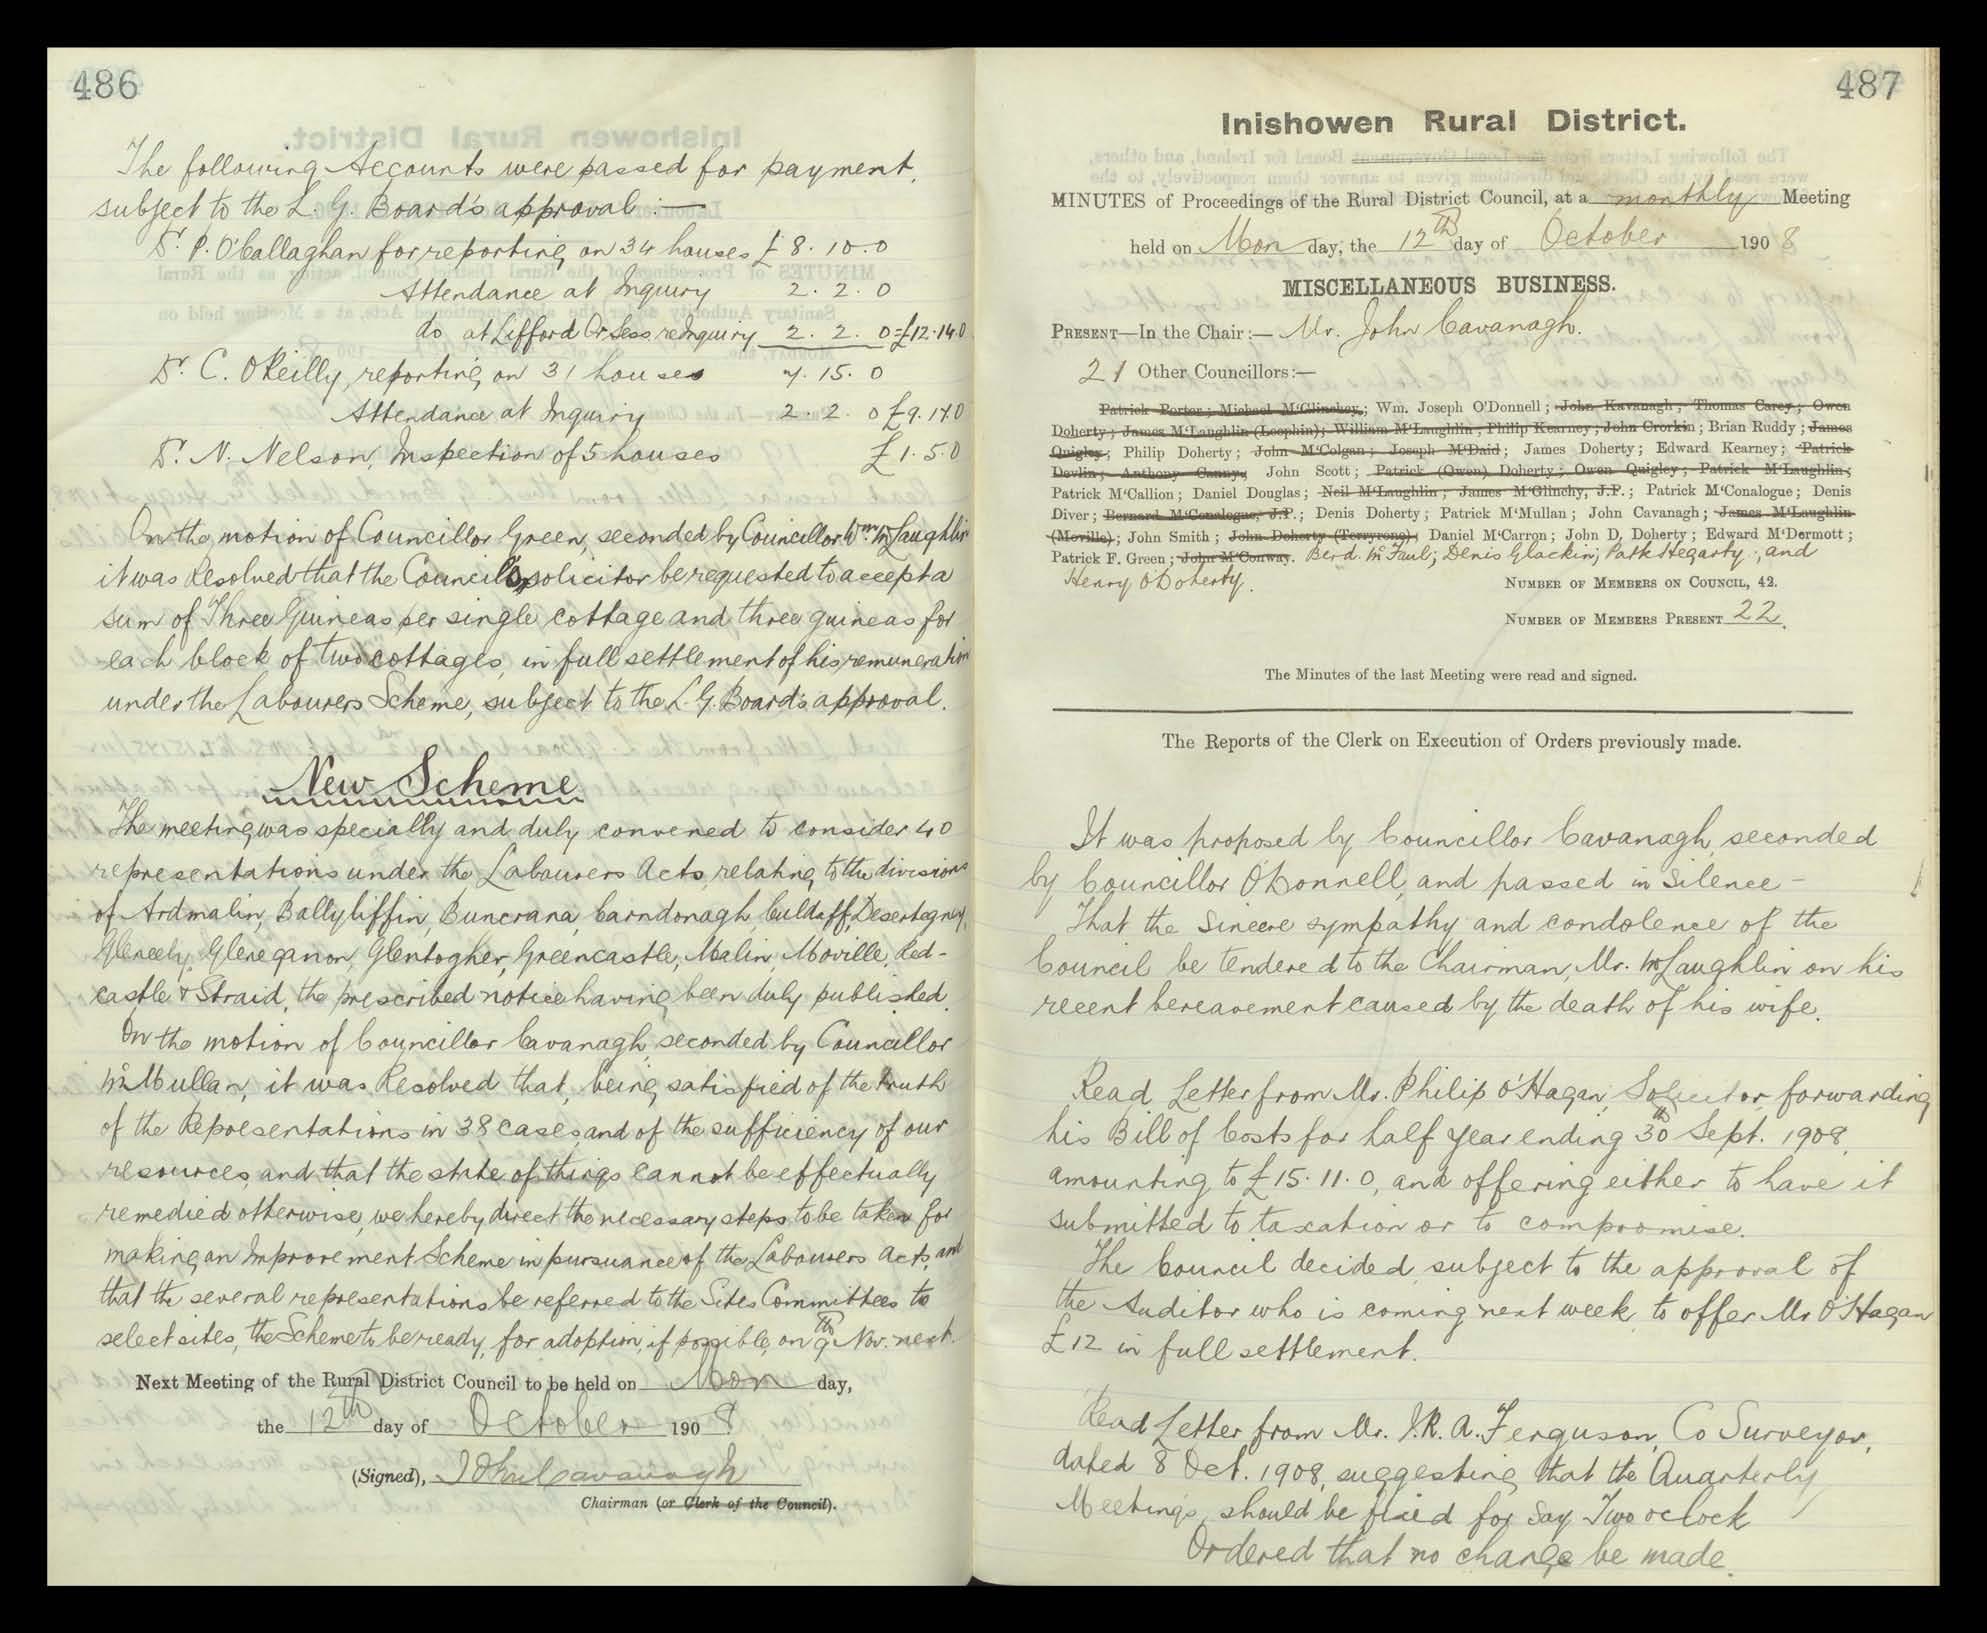 486
The following Accounts were passed for payment,
subject to the L. G. Board's approval :—
Dr. P. O'Callaghan for reporting on 34 houses £ 8. 10. 0
Attendance at Inquiry 2. 2. 0
do at Lifford Qr. Sess. re Inquiry 2. 2. 0 = £12.14.0
Dr. C. O'Reilly, reporting on 31 houses 7. 15. 0
Attendance at Inquiry 2. 2. 0 £9.17.0
Dr. N. Nelson, Inspection of 5 houses £1.5.0
On the motion of Councillor Green, seconded by Councillor Wm. McLaughlin
it was Resolved that the Council's solicitor be requested to accept a
sum of Three Guineas per single cottage and three guineas for
each block of two cottages, in full settlement of his remuneration
under the Labourers Scheme, subject to the L. G. Board's approval.
New Scheme
The meeting was specially and duly convened to consider 40
representations under the Labourers Acts, relating to the divisions
of Ardmalin, Ballyliffin, Buncrana, Carndonagh, Culdaff, Desertegney,
Gleneely, Gleneganon, Glentogher, Greencastle, Malin, Moville, Red-
castle & Straid, the prescribed notice having been duly published.
On the motion of Councillor Cavanagh, seconded by Councillor
McMullan, it was Resolved that, being satisfied of the truth
of the Representations in 38 cases, and of the sufficiency of our
resources, and that the state of things cannot be effectually
remedied otherwise, we hereby direct the necessary steps to be taken for
making an Improvement Scheme in pursuance of the Labourers Acts, and
that the several representations be referred to the Sites Committees to
select sites, the Scheme to be ready, for adoption, if possible, on 9th Nov. next.
Next Meeting of the Rural District Council to be held on Mon day,
the 12th day of October 1908
(Signed), John Cavanagh
Chairman (or Clerk of the Council).
487
Inishowen Rural District.
MINUTES of Proceedings of the Rural District Council, at a monthly Meeting
held on Mon day, the 12th day of October 1908
MISCELLANEOUS BUSINESS.
PRESENT—In the Chair :— Mr. John Cavanagh.
21 Other Councillors:—
Patrick Porter; Michael M'Glinchey; Wm. Joseph O'Donnell; John Kavanagh; Thomas Carey; Owen
Doherty; James M'Laughlin (Leophin); William M'Laughlin; Philip Kearney; John Crorkin; Brian Ruddy; James
Quigley; Philip Doherty; John M'Colgan; Joseph M'Daid; James Doherty; Edward Kearney; Patrick
Devlin; Anthony Canny; John Scott; Patrick (Owen) Doherty; Owen Quigley; Patrick M'Laughlin;
Patrick M'Callion; Daniel Douglas; Neil M'Laughlin; James M'Glinchy, J.P.; Patrick M'Conalogue; Denis
Diver; Bernard M'Conalogue, J.P.; Denis Doherty; Patrick M'Mullan; John Cavanagh; James M'Laughlin
(Moville); John Smith; John Doherty (Terryrone); Daniel M'Carron; John D. Doherty; Edward M'Dermott;
Patrick F. Green; John M'Conway. Berd. McFaul; Denis Glackin; Patk Hegarty; and
Henry O'Doherty.
NUMBER OF MEMBERS ON COUNCIL, 42.
NUMBER OF MEMBERS PRESENT 22.
The Minutes of the last Meeting were read and signed.
The Reports of the Clerk on Execution of Orders previously made.
It was proposed by Councillor Cavanagh, seconded
by Councillor O'Donnell, and passed in silence –
That the sincere sympathy and condolence of the
Council be tendered to the Chairman, Mr. McLaughlin on his
recent bereavement caused by the death of his wife.
Read Letter from Mr. Philip O'Hagan, Solicitor, forwarding
his Bill of Costs for half year ending 30th Sept. 1908,
amounting to £15. 11. 0, and offering either to have it
submitted to taxation or to compromise.
The Council decided, subject to the approval of
the Auditor who is coming next week, to offer Mr O'Hagan
£12 in full settlement.
Read Letter from Mr. J. R. A. Ferguson, Co Surveyor,
dated 8 Oct. 1908, suggesting that the Quarterly
Meetings should be fixed for say Two o'clock
Ordered that no change be made.